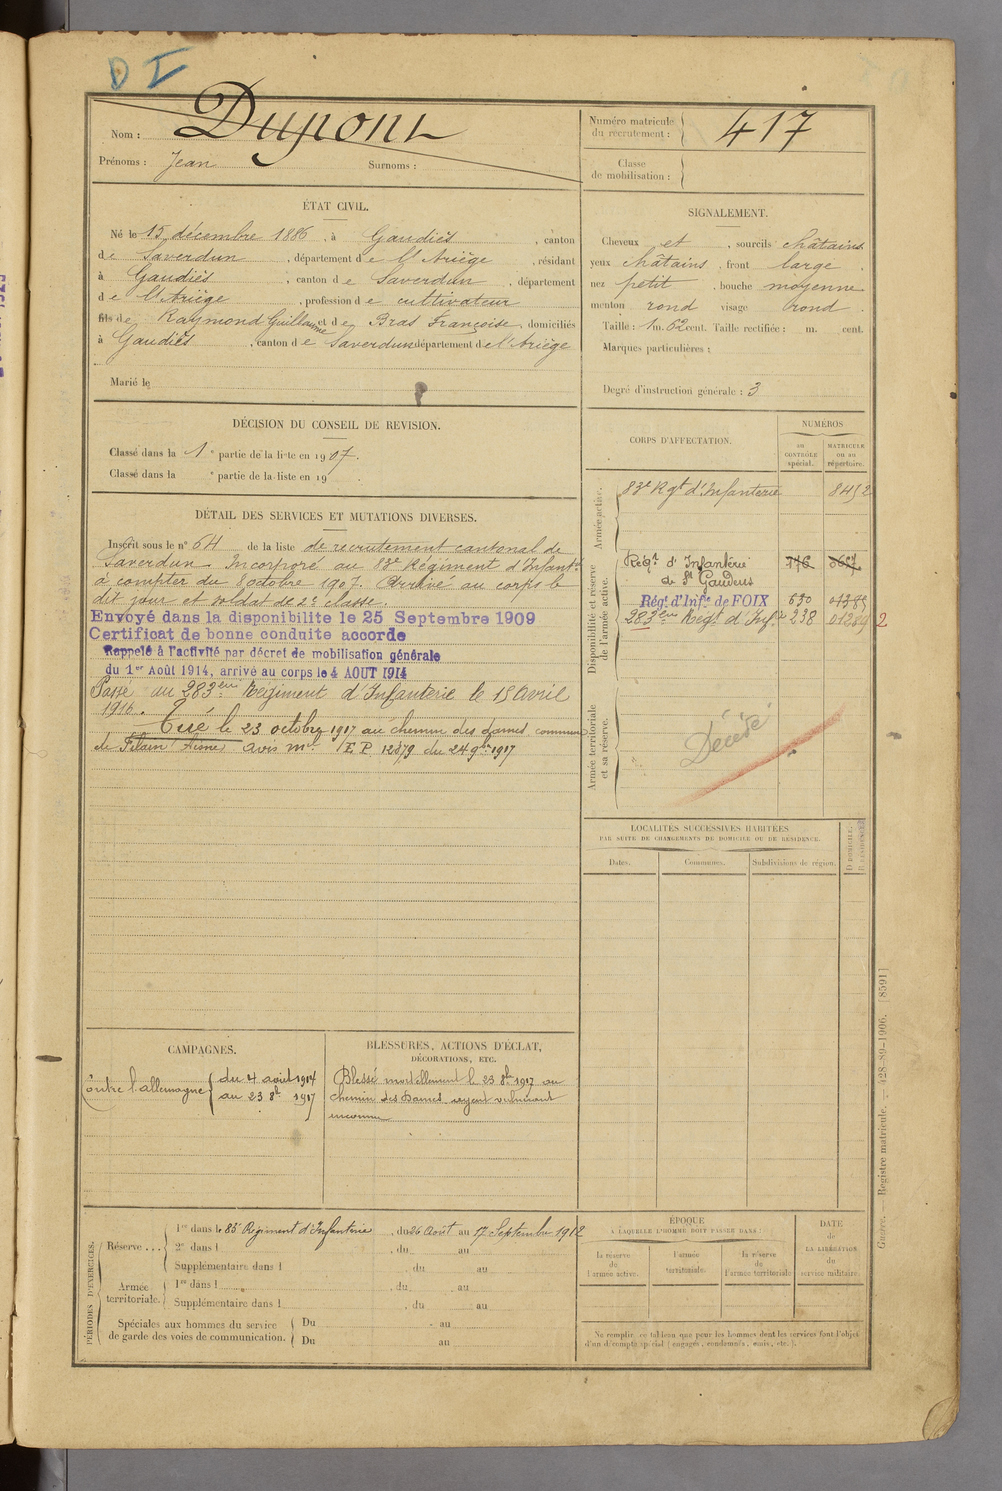 D I
Nom : Dupont
Prénoms : Jean Surnoms :
Numéro matricule du recrutement : 417
Classe de mobilisation :
ÉTAT CIVIL.
Né le 15 décembre 1886, à Gaudiès, canton
de Saverdun, département de l'Ariège, résidant
à Gaudiès, canton de Saverdun, département
de l'Ariège, profession de cultivateur
fils de Raymond Guillaume et de Bras Françoise, domiciliés
à Gaudiès, canton de Saverdun département de l'Ariège
Marié le
SIGNALEMENT.
Cheveux et, sourcils châtains
yeux châtains, front large.
nez petit, bouche moyenne
menton rond visage rond.
Taille : 1 m. 62 cent. Taille rectifiée : m. cent.
Marques particulières :
Degré d'instruction générale : 3
DÉCISION DU CONSEIL DE REVISION.
Classé dans la 1e partie de la liste en 1907.
Classé dans la e partie de la liste en 19
DÉTAIL DES SERVICES ET MUTATIONS DIVERSES.
Inscrit sous le n° 64 de la liste de recrutement cantonal de
Saverdun. Incorporé au 83e Régiment d'Infantie
à compter du 8 octobre 1907. Arrivé au corps le
dit jour et soldat de 2e classe.
Envoyé dans la disponibilite le 25 Septembre 1909
Certificat de bonne conduite accorde
Rappelé à l'activité par décret de mobilisation générale
du 1er Août 1914, arrivé au corps le 4 AOUT 1914
Passé au 283ème Régiment d'Infanterie le 15 Avril
1916.
Tué le 23 octobre 1917 au chemin des dames commune
de Filain Aisne avis mel E.P. 12879 du 24 9bre 1917
CORPS D'AFFECTATION.
NUMÉROS
au CONTRÔLE spécial.
MATRICULE ou au répertoire.
Armée active.
83e Rgt d'Infanterie 8452
Disponibilité et réserve de l'armée active.
Régt d'Infanterie 776
de St Gaudens
Régt d'Infie de FOIX 630 01385
283ème Régt d'Infie 238 01289 2
Armée territoriale et sa réserve.
Décédé
LOCALITÉS SUCCESSIVES HABITÉES
PAR SUITE DE CHANGEMENTS DE DOMICILE OU DE RÉSIDENCE.
Dates. Communes. Subdivisions de région. D DOMICILE. R RÉSIDENCE.
CAMPAGNES.
Contre l'allemagne { du 4 août 1914
au 23 8bre 1917
BLESSURES, ACTIONS D'ÉCLAT,
DÉCORATIONS, ETC.
Blessé mortellement le 23 8bre 1917 au
chemin des Dames. agent vulnérant
inconnu
PÉRIODES D'EXERCICES.
Réserve ... 1re dans le 83e Régiment d'Infanterie, du 26 Août au 17 Septembre 1912
2e dans l , du au
Supplémentaire dans l , du au
Armée territoriale. 1re dans l , du au
Supplémentaire dans l , du au
Spéciales aux hommes du service Du au
de garde des voies de communication. Du au
ÉPOQUE
A LAQUELLE L'HOMME DOIT PASSER DANS :
la réserve de l'armée active.
l'armée territoriale.
la réserve de l'armée territoriale
DATE
de LA LIBÉRATION du service militaire.
Ne remplir ce tableau que pour les hommes dont les services font l'objet
d'un décompte spécial (engagés, condamnés, omis, etc.).
Guerre. — Registre matricule. — 428-89-1906. [8591]